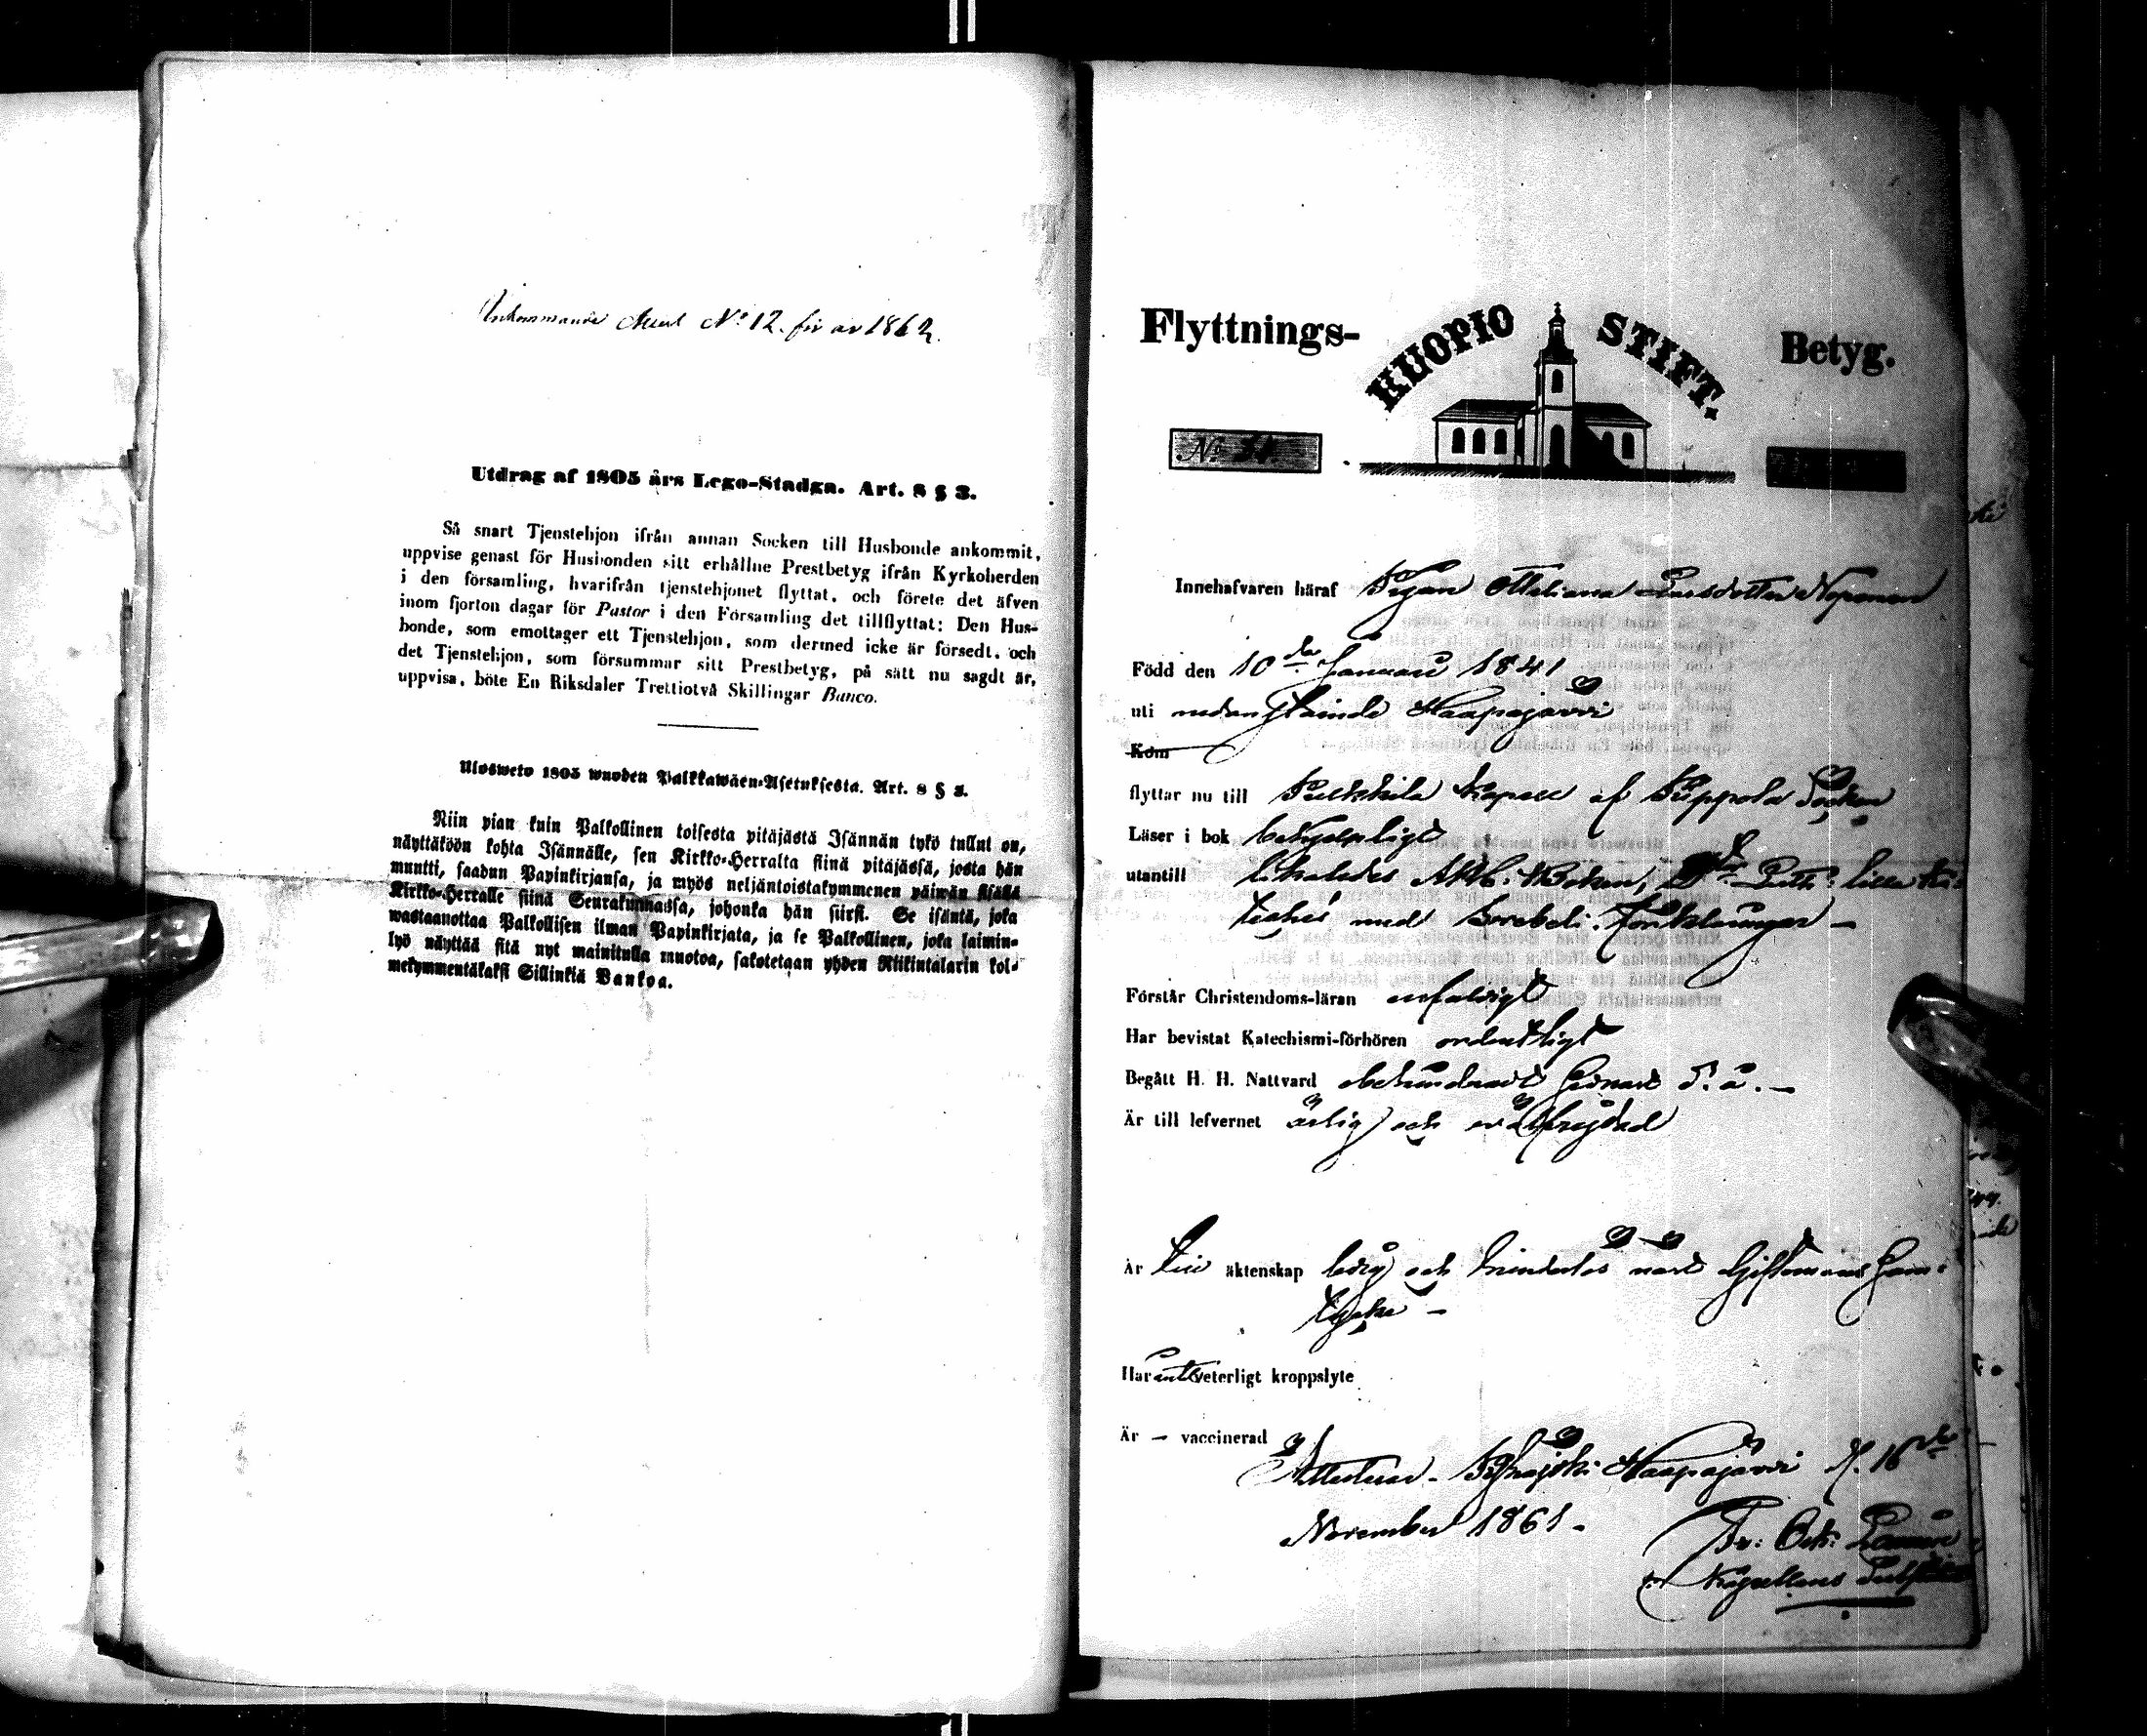 Inkommande Attest No 12. för år 1862.
Utdrag af 1805 års Lego-Stadga. Art. 8 § 3.
Så snart Tjenstehjon ifrån annan Socken till Husbonde ankommit,
uppvise genast för Husbonden sitt erhållne Prestbetyg ifrån Kyrkoherden
i den församling, hvarifrån tjenstehjonet flyttat, och förete det äfven
inom fjorton dagar för Pastor i den Församling det tillflyttat: Den Hus-
bonde, som emottager ett Tjenstehjon, som dermed icke är försedt, och
det Tjenstehjon, som försummar sitt Prestbetyg, på sätt nu sagdt är,
uppvisa, böte En Riksdaler Trettiotvå Skillingar Banco.
Ulosweto 1805 wuoden Palkkawäen-Asetuksesta. Art. 8 § 3.
Niin pian kuin Palkollinen toisesta pitäjästä Isännän tykö tullut on,
näyttäköön kohta Isännälle, sen Kirkko-Herralta siinä pitäjässä, josta hän
muutti, saadun Papinkirjansa, ja myös neljäntoistakymmenen päiwän sisällä
Kirkko-Herralle siinä Seurakunnassa, johonka hän siirsi. Se isäntä, joka
wastaanottaa Palkollisen ilman Papinkirjata, ja se Palkollinen, joka laimin-
lyö näyttää sitä nyt mainitulla muotoa, sakotetaan yhden Riikintalarin kol-
mekymmentäkaksi Sillinkiä Bankoa.
Flyttnings- KUOPIO STIFT. Betyg.
No 31.
Innehafvaren häraf Pigan Ottiliana Larsdotter Noponen
Född den 10de Januari 1841
uti nedanstående Haapajärvi
Kom
flyttar nu till Pulkkila Kapell af Piippola Socken
Läser i bok behjelpligt
utantill likaledes ABC-Boken, Dr Luth: lilla Ka-
teches med Svebelii Förklaringar —
Förstår Christendoms-läran enfaldigt
Har bevistat Katechismi-förhören ordentligt
Begått H. H. Nattvard obehindrad senast d. å. —
Är till lefvernet ärlig och välfrejdad
Är till äktenskap ledig och hinderlös med Giftomans Sam-
tycke —
Har intet veterligt kroppslyte
Är — vaccinerad
Attesterar Haapajärvi d. 16de
November 1861 —
Kapellans